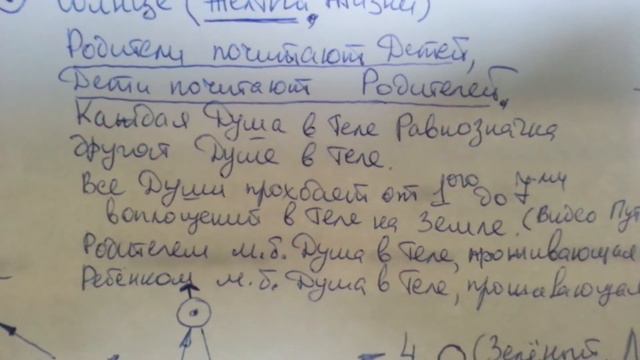 Солнце (Жёлтый, Жизни)
Родители почитают Детей,
Дети почитают Родителей.
Каждая Душа в Теле Равнозначна
другой Душе в Теле.
Все Души прохбает от 1ого до 7ми
воплощений в Теле на Земле. (Видео Пут
Родителем м.б. Душа в Теле, проживающая
Ребёнком м.б. Душа в Теле, проживающая
4 (Зелёный,